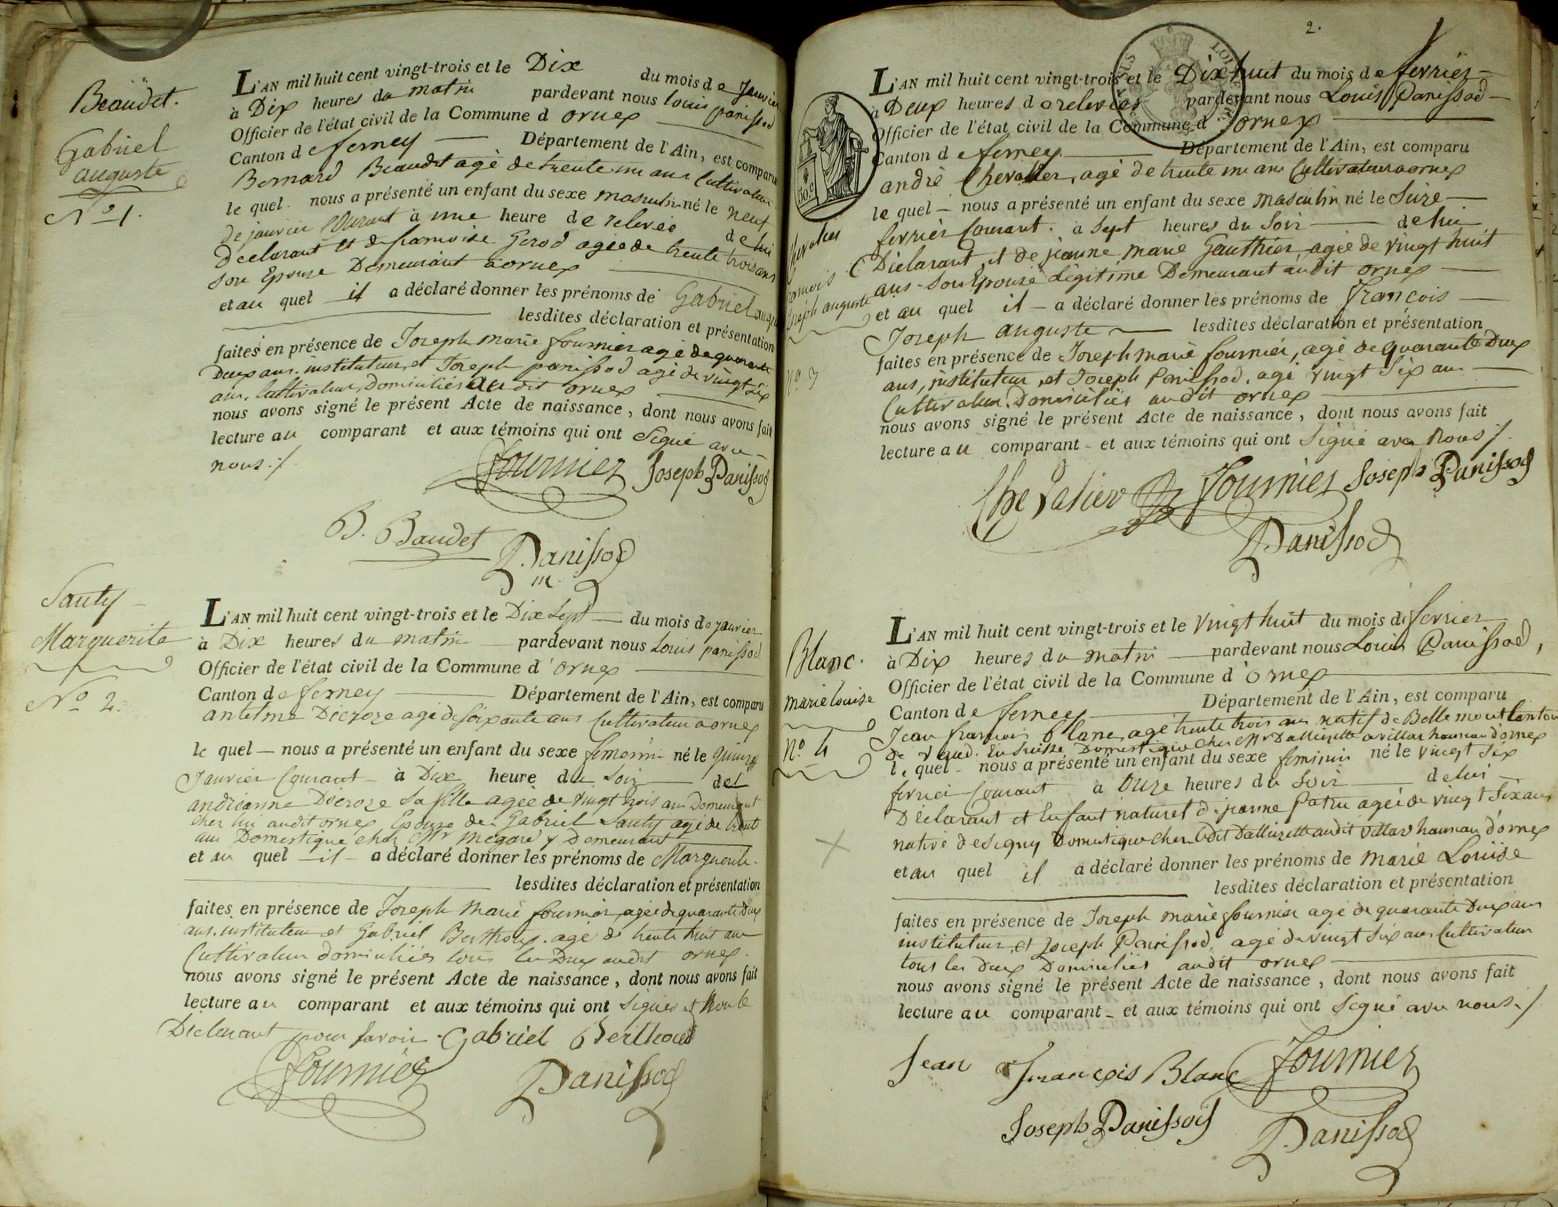 Beaudet.
Gabriel
auguste
N.° 1.
L'AN mil huit cent vingt-trois et le Dix du mois de Janvier
à Dix heures du matin pardevant nous Louis panissod
Officier de l'état civil de la Commune d'ornex
Canton de ferney Département de l'Ain, est comparu
Bernard Beaudet agé de trente un ans Cultivateur
le quel nous a présenté un enfant du sexe masculin né le neuf
de janvier Courant à une heure de relevée de lui
Déclarant et de francoise Gerod agée de trente trois ans
son Epouse Demeurant a ornex
et au quel il a déclaré donner les prénoms de Gabriel auguste
lesdites déclaration et présentation
faites en présence de Joseph marie fournier agé de quarante
Deux ans, instituteur, et Joseph panissod agé de vingt six
ans, Cultivateur, Domiciliés au dit ornex
nous avons signé le présent Acte de naissance, dont nous avons fait
lecture au comparant et aux témoins qui ont Signé avec
nous ./.
Fournier Joseph Panissod
B. Baudet
Panissod
m.
Sauty
Marguerite
N.° 2.
L'AN mil huit cent vingt-trois et le Dix Sept du mois de janvier
à Dix heures du matin pardevant nous Louis panissod
Officier de l'état civil de la Commune d'ornex
Canton de ferney Département de l'Ain, est comparu
antelme Décroze agé de soixante ans Cultivateur a ornex
le quel nous a présenté un enfant du sexe feminin né le quinze
Janvier Courant à Dix heure du Soir de
andrianne Décroze Sa fille agée de vingt trois ans Demeurant
chez lui audit ornex Epouse de Gabriel Sauty agé de trente
ans Domestique chez Mr Megard y Demeurant
et au quel il a déclaré donner les prénoms de Marguerite
lesdites déclaration et présentation
faites en présence de Joseph Marie fournier, agée de quarante Deux
ans, instituteur et Gabriel Berthoux agé de trente huit ans
Cultivateur domiciliés tous les Deux audit ornex.
nous avons signé le présent Acte de naissance, dont nous avons fait
lecture au comparant et aux témoins qui ont signés et non le
Déclarant pour savoir Gabriel Berthoud
Fournier Panissod
2.
Chevalier
francois
joseph auguste
N.° 3
L'AN mil huit cent vingt-trois et le Dix huit du mois de fevrier
à Deux heures de relevées pardevant nous Louis Panissod
Officier de l'état civil de la Commune d'ornex
Canton de ferney Département de l'Ain, est comparu
andré Chevallier, agé de trente un ans Cultivateur a ornex
le quel nous a présenté un enfant du sexe masculin né le Seize
fevrier Courant à Sept heures du Soir de lui
Déclarant, et de jeanne marie Gauthier, agée de vingt huit
ans Son Epouse Légitime Demeurant audit ornex
et au quel il a déclaré donner les prénoms de françois
Joseph auguste lesdites déclaration et présentation
faites en présence de Joseph marie fournier, agé de quarante Deux
ans, instituteur, et Joseph Panissod, agé vingt Six ans
Cultivateur, Domiciliés audit ornex
nous avons signé le présent Acte de naissance, dont nous avons fait
lecture au comparant et aux témoins qui ont Signé avec Nous ./.
Chevalier Fournier Joseph Panissod
Panissod
Blanc.
marie louise
N.° 4
L'AN mil huit cent vingt-trois et le vingt huit du mois de fevrier
à Dix heures du matin pardevant nous Louis Panissod,
Officier de l'état civil de la Commune d'ornex
Canton de ferney Département de l'Ain, est comparu
Jean francois Blanc, agé trente trois ans natif de Bellemont Canton
de Vaud, En Suisse Domestique chez Mr Dallizette a villar hameau d'ornex
le quel nous a présenté un enfant du sexe feminin né le vingt Six
fevrier Courant à Onze heures du Soir de lui
Déclarant et Enfant naturel d jeanne Patru agée de vingt Six ans
native de Signy Domestique chez ledit Dallizette audit villar hameau d'ornex
et au quel il a déclaré donner les prénoms de marie Louise
lesdites déclaration et présentation
faites en présence de Joseph marie fournier agé de quarante Deux ans
instituteur, et Joseph Panissod, agé de vingt Six ans Cultivateur
tous les Deux Domiciliés audit ornex
nous avons signé le présent Acte de naissance, dont nous avons fait
lecture au comparant et aux témoins qui ont Signé avec nous ./
Jean François Blanc Fournier
Joseph Panissod Panissod